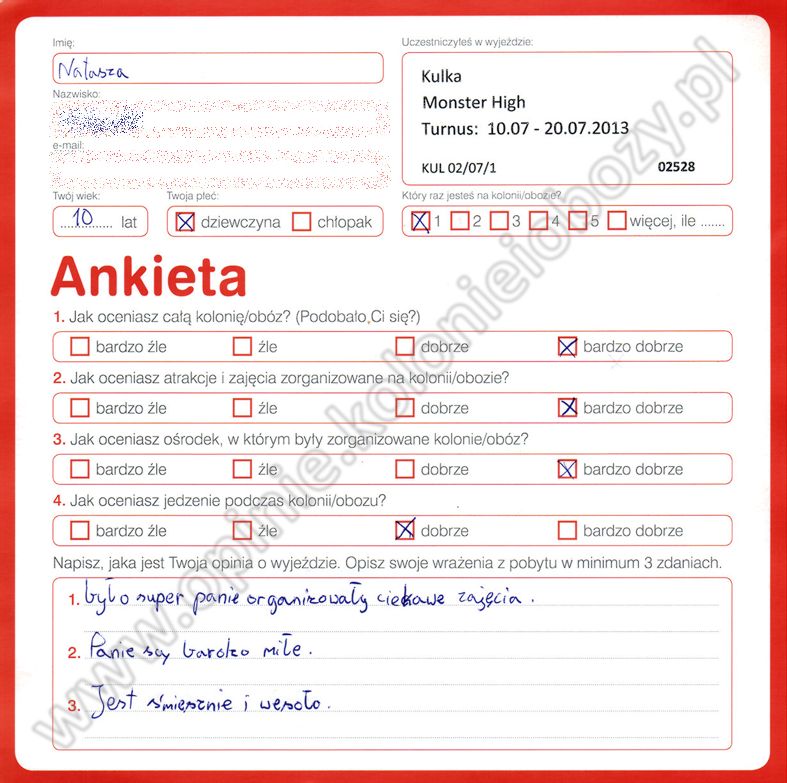 Imię:
Natasza
Nazwisko:
e-mail:
Twój wiek:
10 lat
Twoja płeć:
dziewczyna chłopak
Uczestniczyłeś w wyjeździe:
Kulka
Monster High
Turnus: 10.07 - 20.07.2013
KUL 02/07/1 02528
Który raz jesteś na kolonii/obozie?
1 2 3 4 5 więcej, ile .......
Ankieta
1. Jak oceniasz całą kolonię/obóz? (Podobało Ci się?)
bardzo źle źle dobrze bardzo dobrze
2. Jak oceniasz atrakcje i zajęcia zorganizowane na kolonii/obozie?
bardzo źle źle dobrze bardzo dobrze
3. Jak oceniasz ośrodek, w którym były zorganizowane kolonie/obóz?
bardzo źle źle dobrze bardzo dobrze
4. Jak oceniasz jedzenie podczas kolonii/obozu?
bardzo źle źle dobrze bardzo dobrze
Napisz, jaka jest Twoja opinia o wyjeździe. Opisz swoje wrażenia z pobytu w minimum 3 zdaniach.
1. było super panie organizowały ciekawe zajęcia.
2. Panie są bardzo miłe.
3. Jest śmiesznie i wesoło.
www.opinie.kolonieiobozy.pl